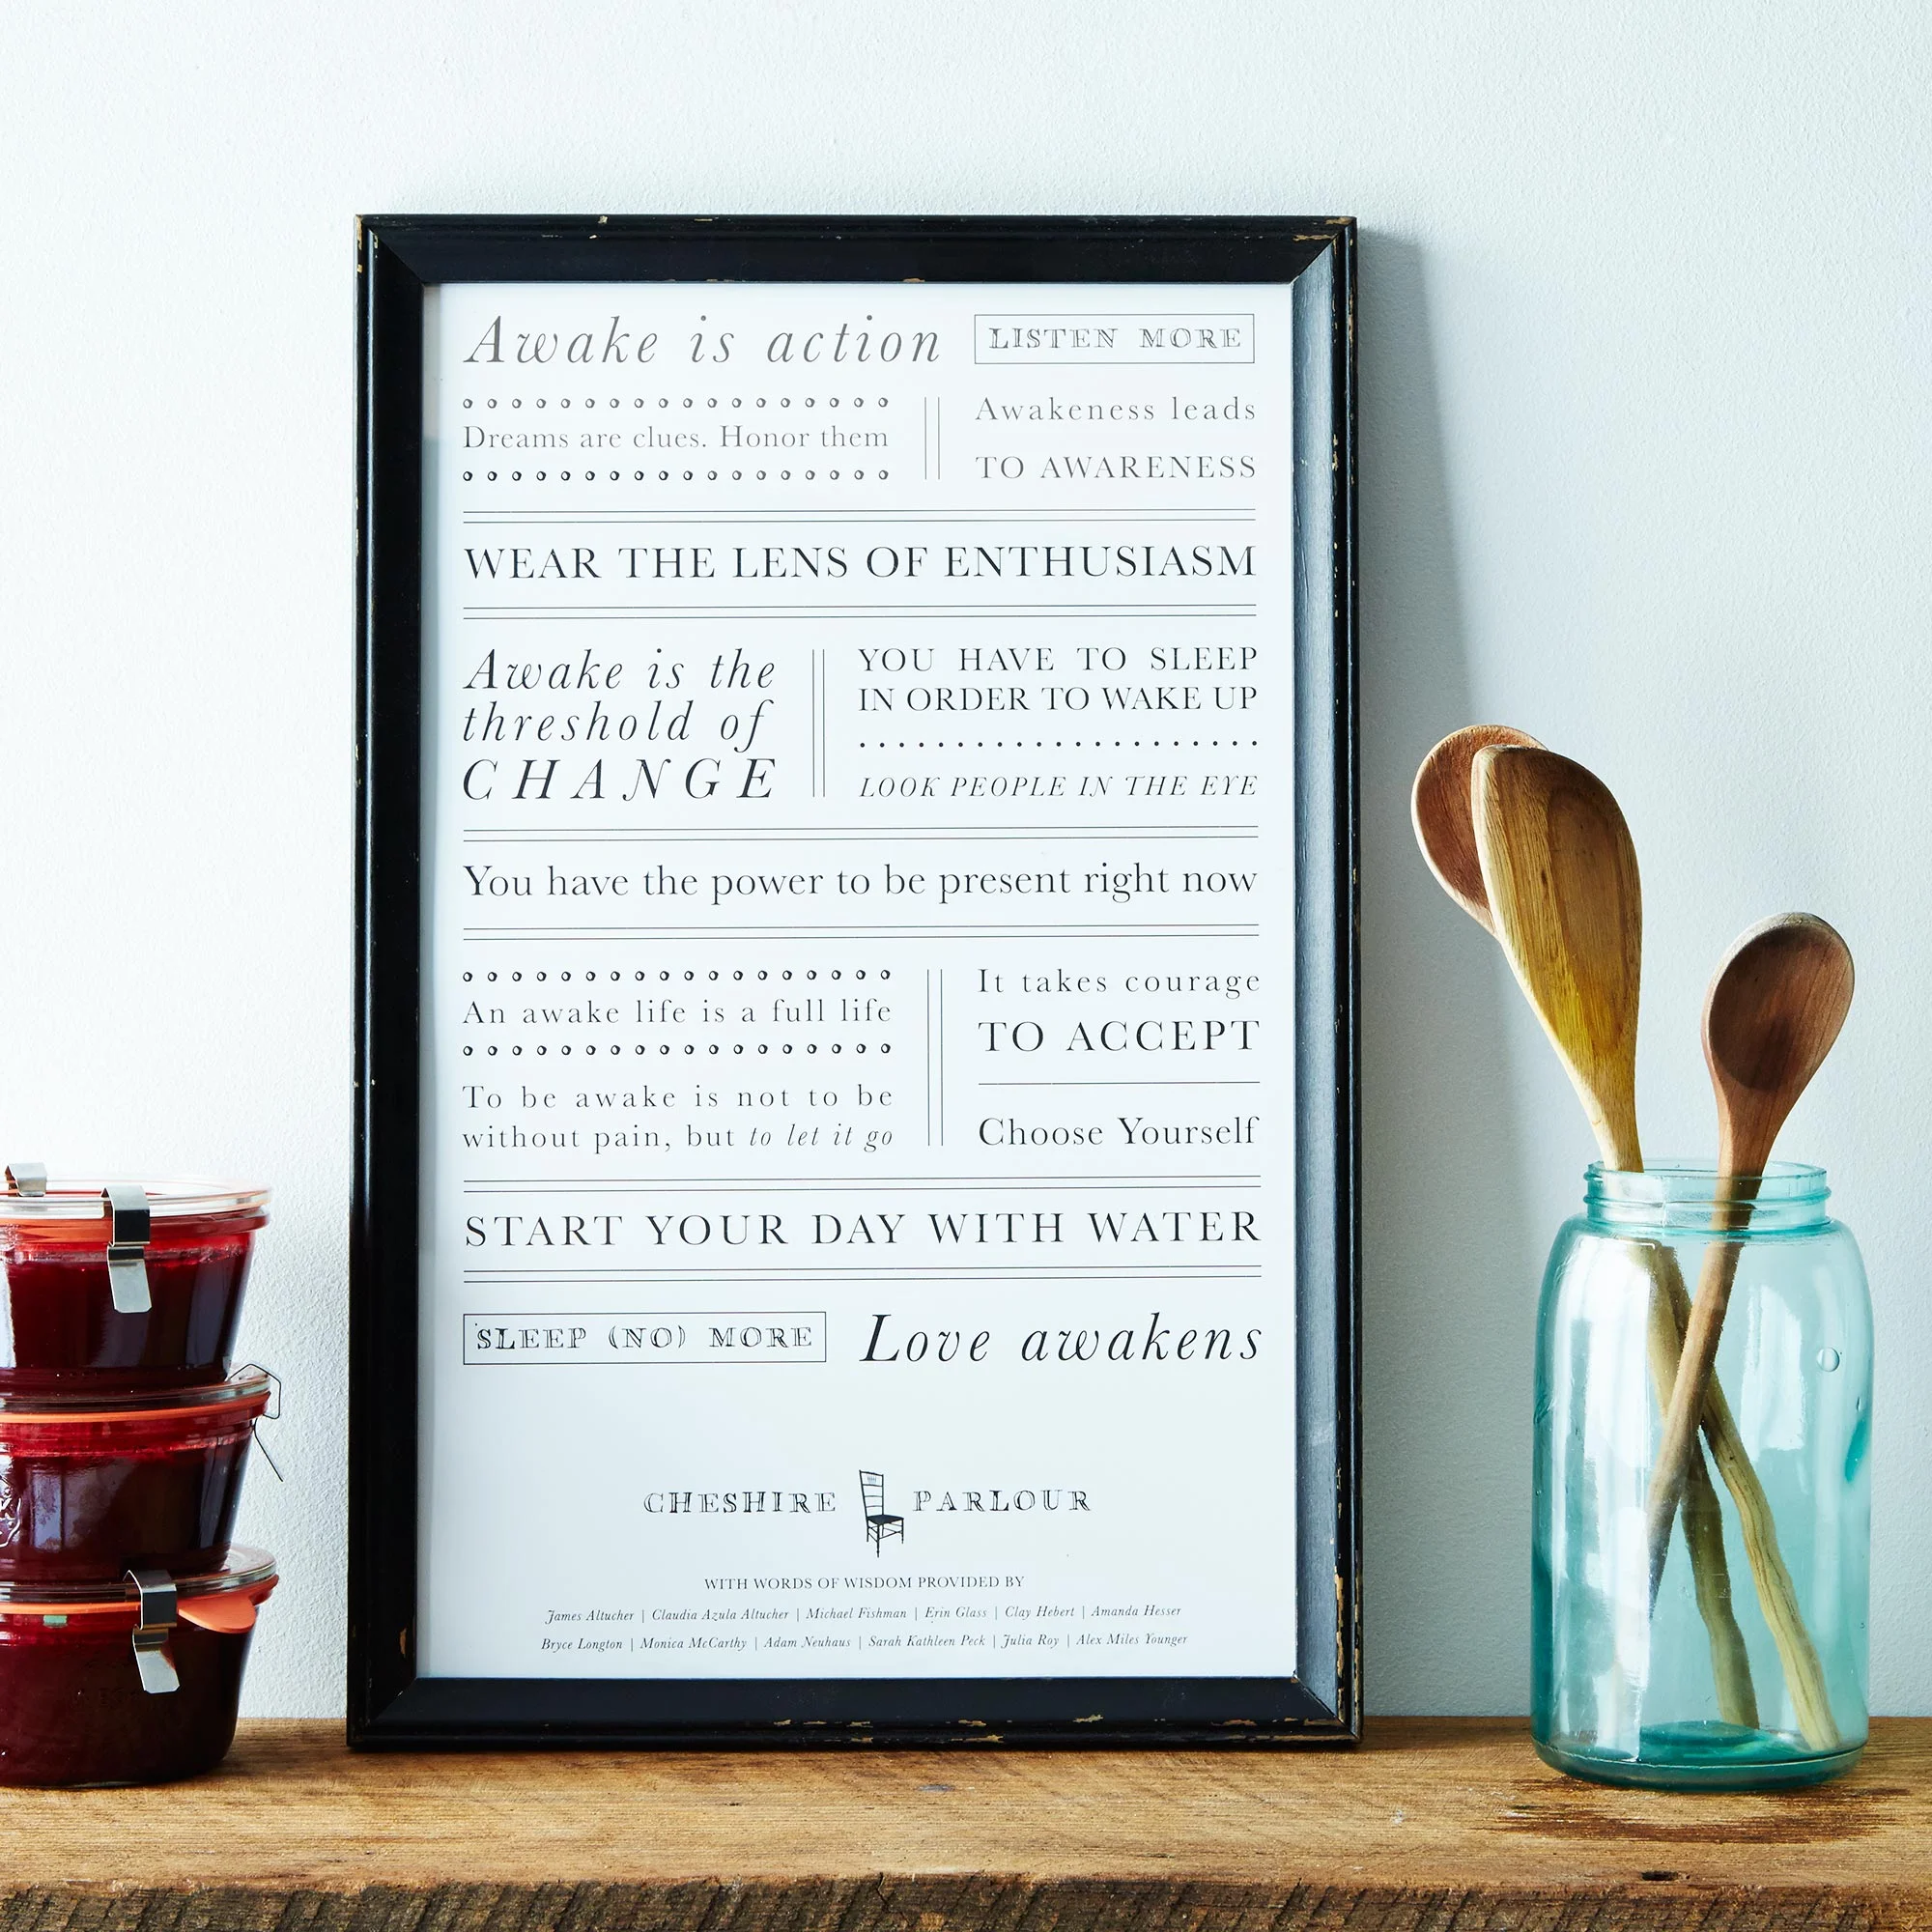 Awake is action
LISTEN MORE
Dreams are clues. Honor them
Awakeness leads
TO AWARENESS
WEAR THE LENS OF ENTHUSIASM
Awake is the
threshold of
CHANGE
YOU HAVE TO SLEEP
IN ORDER TO WAKE UP
LOOK PEOPLE IN THE EYE
You have the power to be present right now
An awake life is a full life
To be awake is not to be
without pain, but to let it go
It takes courage
TO ACCEPT
Choose Yourself
START YOUR DAY WITH WATER
SLEEP (NO) MORE
Love awakens
CHESHIRE PARLOUR
WITH WORDS OF WISDOM PROVIDED BY
James Altucher | Claudia Azula Altucher | Michael Fishman | Erin Glass | Clay Hebert | Amanda Hesser
Bryce Longton | Monica McCarthy | Adam Neuhaus | Sarah Kathleen Peck | Julia Roy | Alex Miles Younger